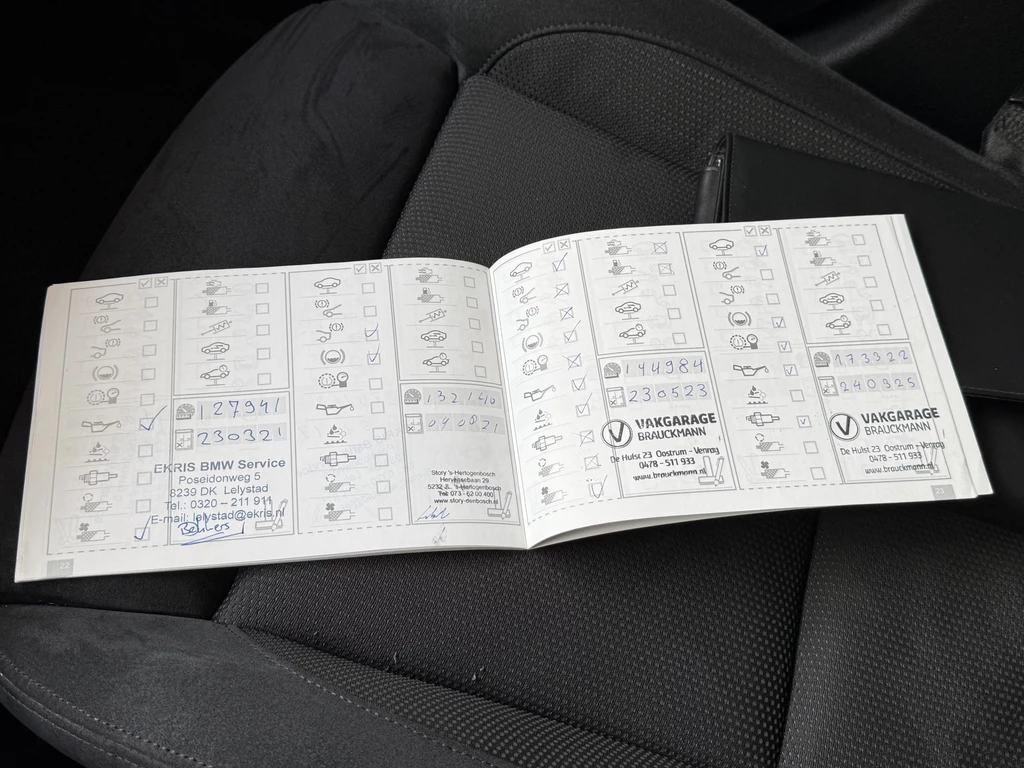 127941
230321
EKRIS BMW Service
Poseidonweg 5
8239 DK Lelystad
Tel.: 0320 - 211 911
E-mail: lelystad@ekris.nl
22
132140
040821
Story 's-Hertogenbosch
Hervensebaan 29
5232 JL 's-Hertogenbosch
Tel: 073 - 62 00 400
www.story-denbosch.nl
144984
230523
VAKGARAGE
BRAUCKMANN
De Hulst 23 Oostrum - Venray
0478 - 511 933
www.brauckmann.nl
173922
240925
VAKGARAGE
BRAUCKMANN
De Hulst 23 Oostrum - Venray
0478 - 511 933
www.brauckmann.nl
23